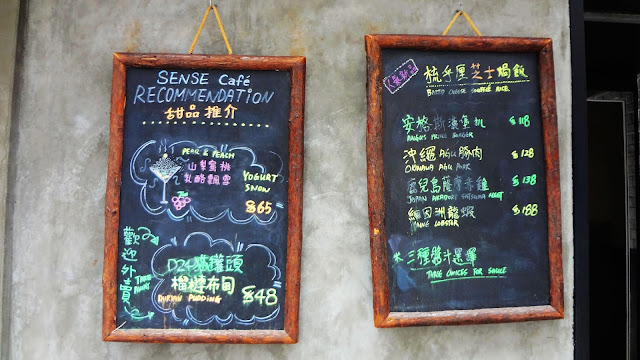 SENSE Café
RECOMMENDATION
甜品推介
PEAR & PEACH
山梨蜜桃
乳酪飄雪
YOGURT
SNOW
$65
歡迎外賣
TAKE
AWAY
D24貓罐頭
榴槤布甸
DURIAN PUDDING
$48
梳乎厘芝士焗飯
BAKED CHEESE SOUFFLÉ RICE
安格斯漢堡扒
$118
ANGUS PRIME BURGER
沖繩AGU豚肉
$128
OKINAWA AGU PORK
鹿兒島薩摩赤雞
$138
JAPAN AKADORI SATSUMA
緬因洲龍蝦
$188
MAINE LOBSTER
*三種醬汁選擇
THREE CHOICES FOR SAUCE